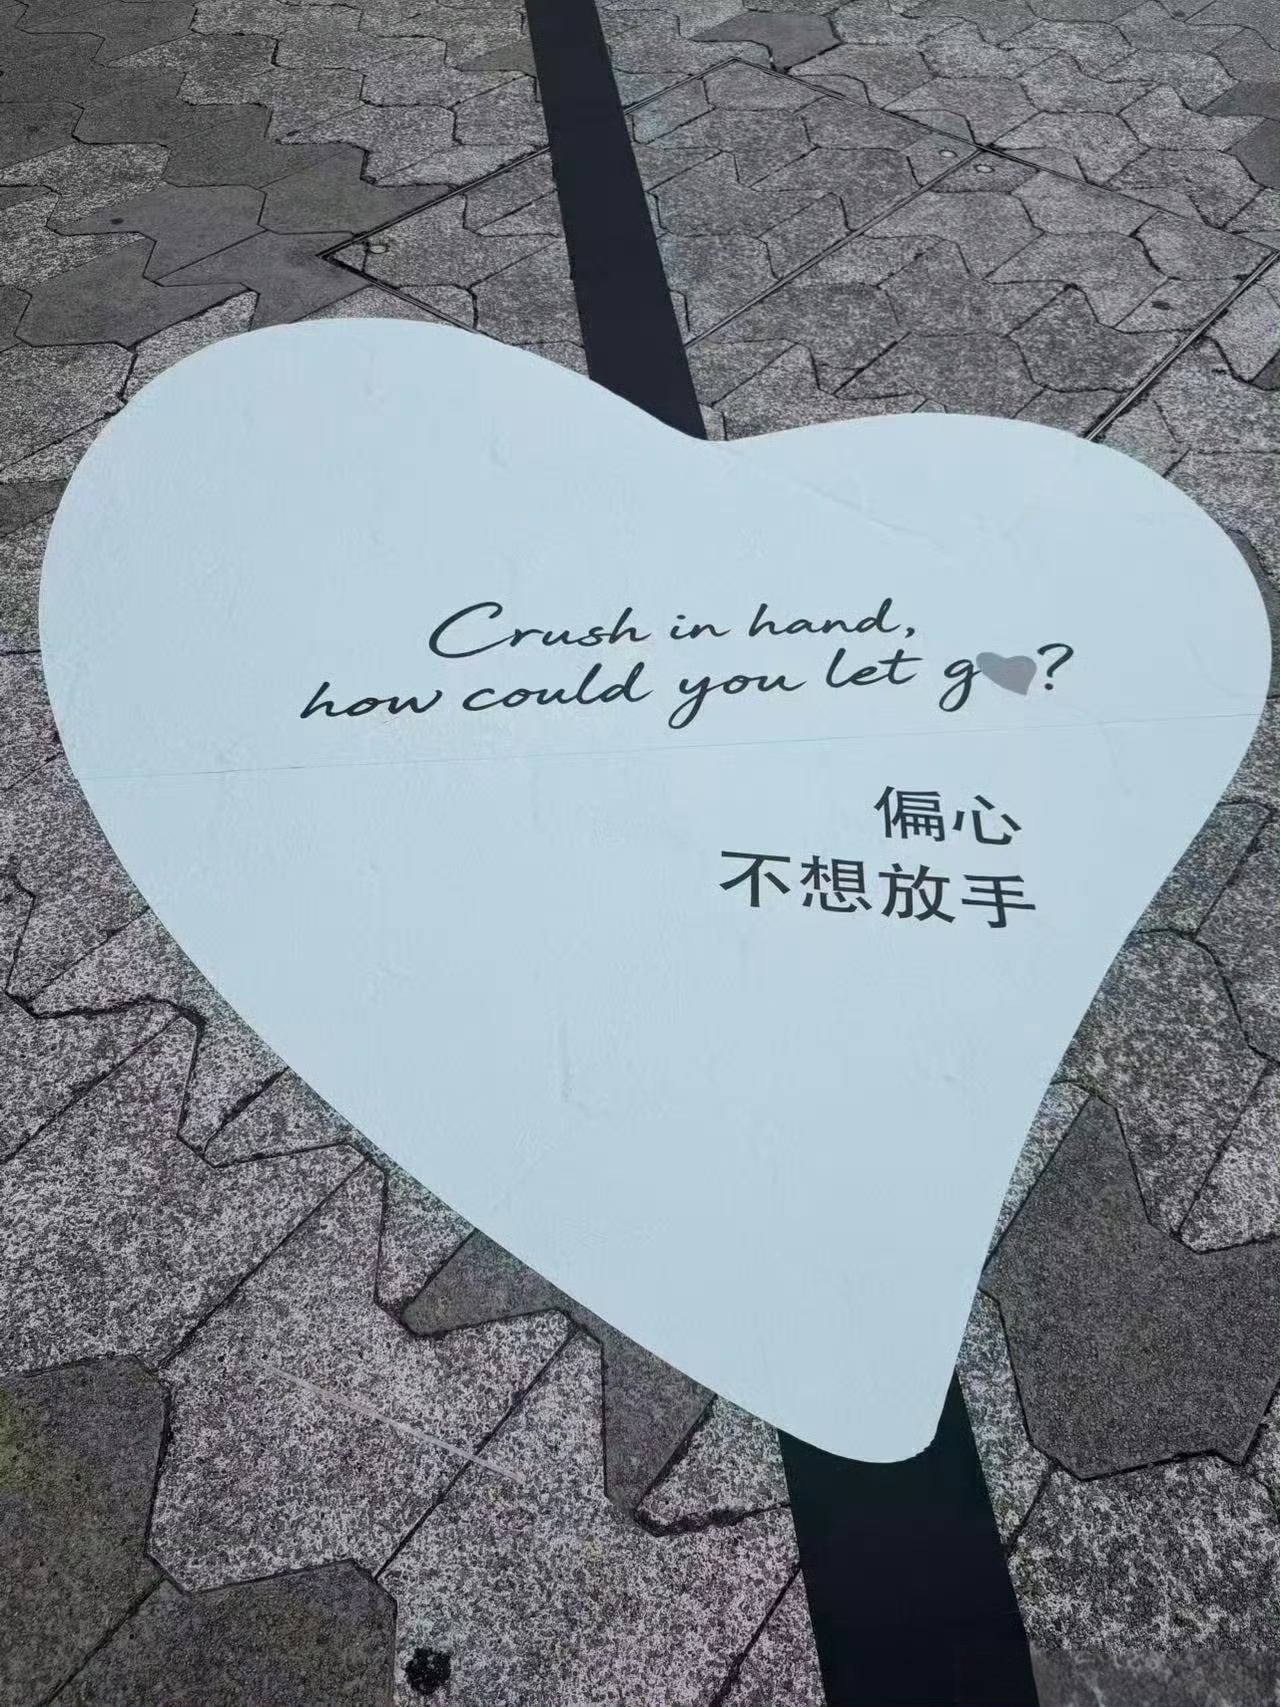 Crush in hand,
how could you let g❤?
偏心
不想放手